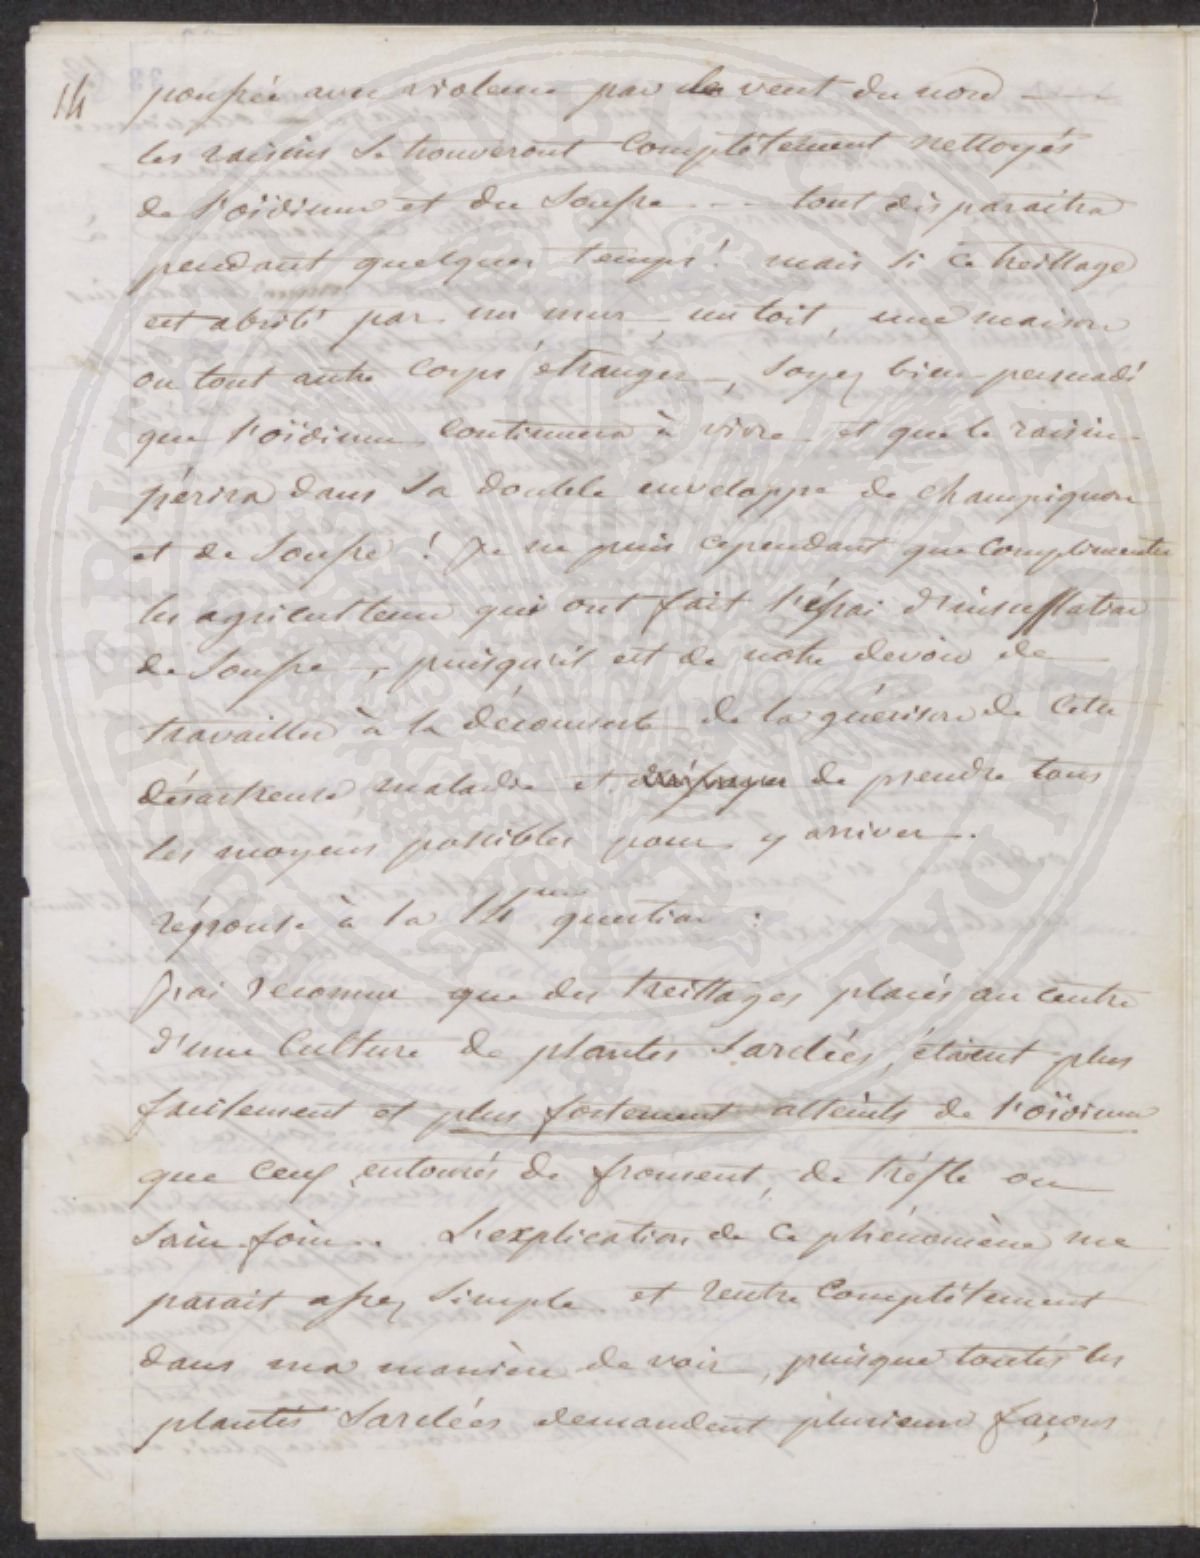 14
poussée avec violence par le vent du nord ----
les raisins se trouveront complètement nettoyés
de l'oïdium et du soufre --- tout disparaitra
pendant quelques temps! mais si ce treillage
est abrité par un mur, un toit, une maison
ou tout autre corps étranger, soyez bien persuadé
que l'oïdium continuera à vivre et que le raisin
périra dans sa double enveloppe de champignon
et de soufre! Je ne puis cependant que complimenter
les agriculteurs qui ont fait l'éssai d'insufflation
de soufre, puisqu'il est de notre devoir de
travailler à la découverte de la guérison de cette
désastreuse maladie et de prendre tous
les moyens possibles pour y arriver.
réponse à la 14me question:
J'ai reconnu que des treillages placés au centre
d'une culture de plantes sarclées, étaient plus
facilement et plus fortement atteints de l'oïdium
que ceux entourés de froment, de trèfle ou
sain-foin.. L'explication de ce phénomène me
parait assez simple et rentre complètement
dans ma manière de voir, puisque toutes les
plantes sarclées demandent plusieurs façons
SIGILLUM PUBLICAE